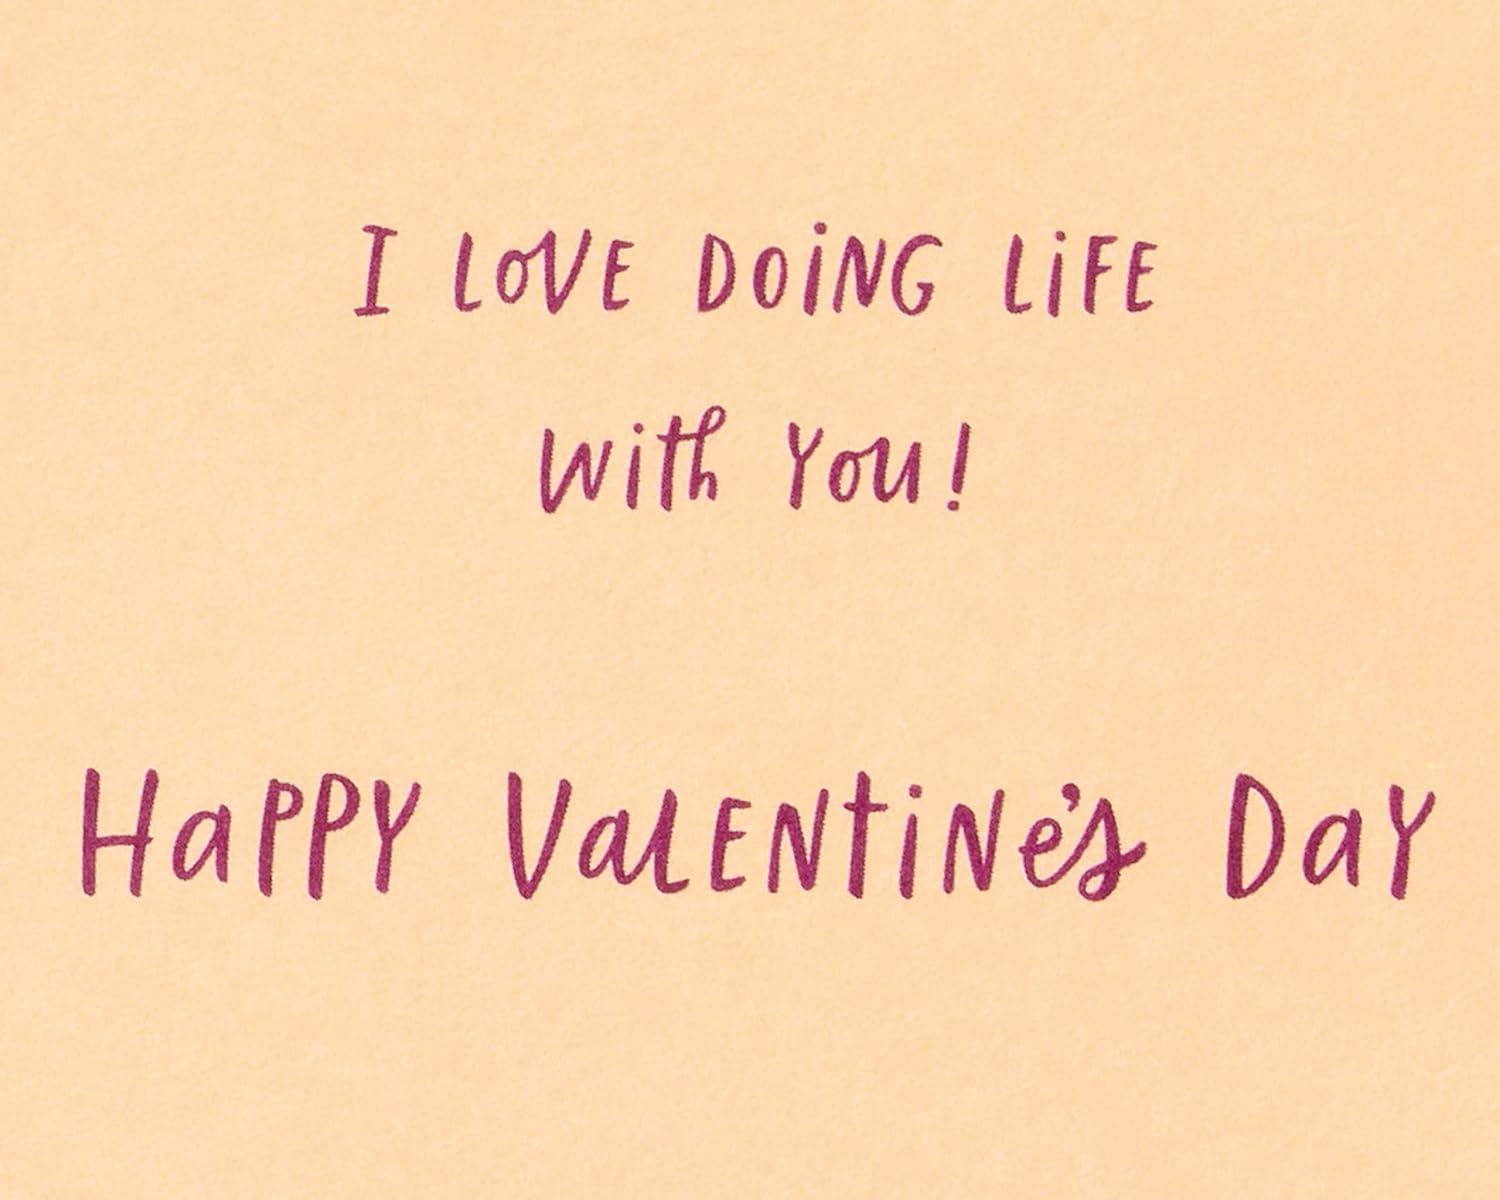 I LOVE DOING LIFE
WITH YOU!
HAPPY VALENTINE'S DAY